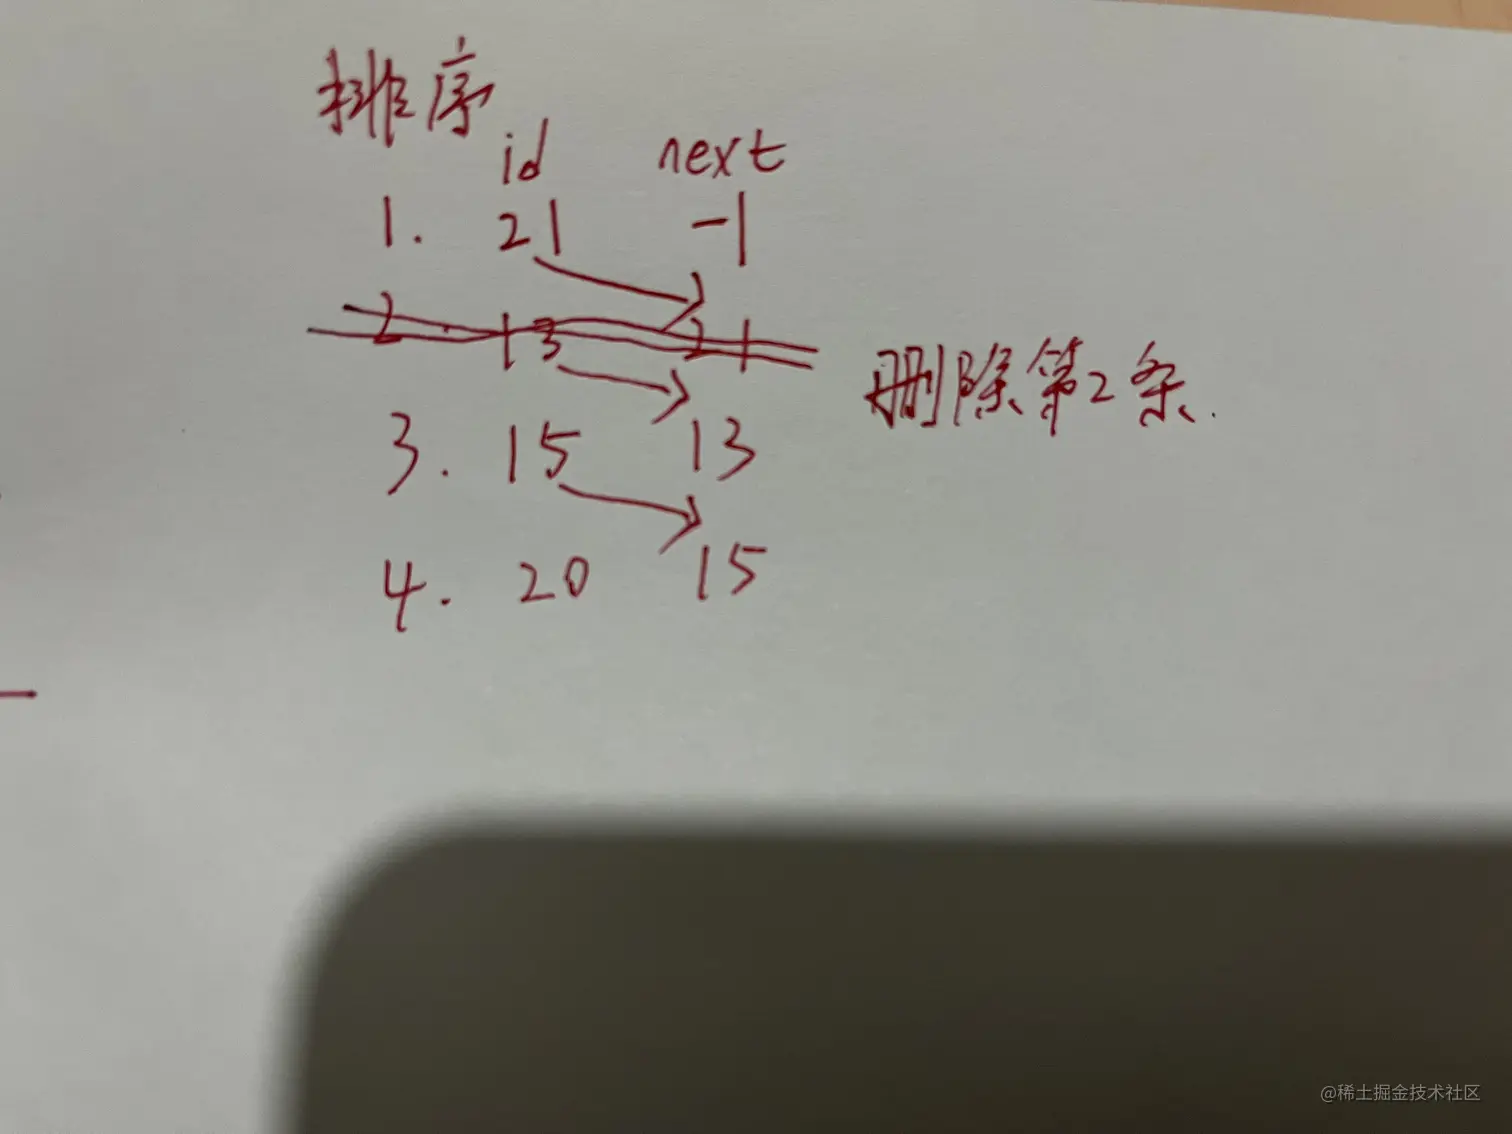 排序
id next
1. 21 -1
2. 13 21
删除第2条.
3. 15 13
4. 20 15
@稀土掘金技术社区